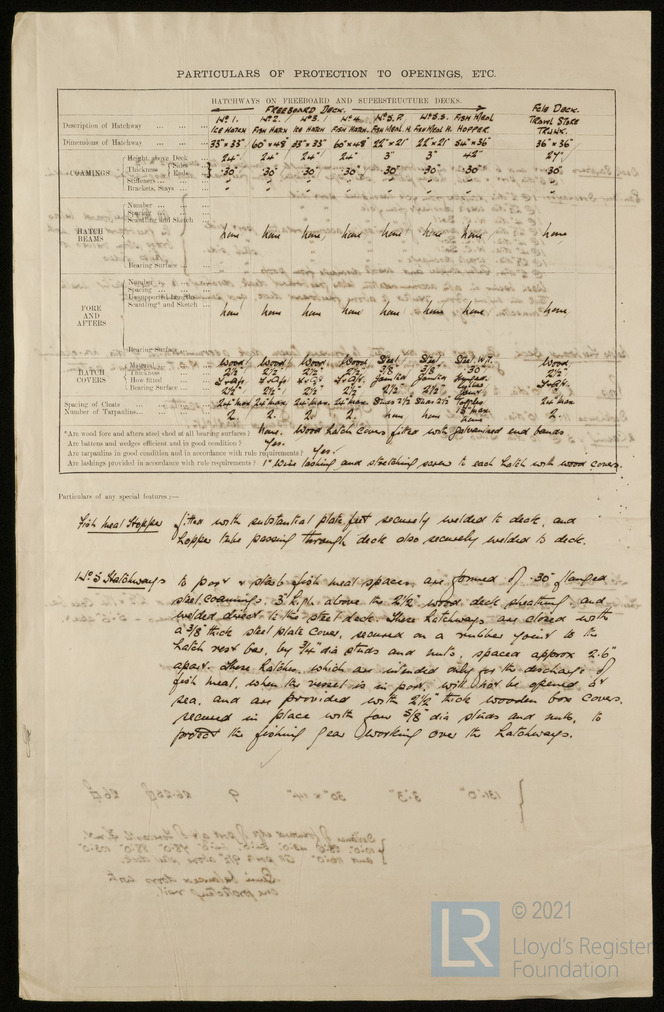 PARTICULARS OF PROTECTION TO OPENINGS, ETC.
HATCHWAYS ON FREEBOARD AND SUPERSTRUCTURE DECKS.
FREEBOARD DECK. FC'LE DECK.
Nº 1. Nº 2. Nº 3. Nº 4. Nº 5. P. Nº 5. S. FISH MEAL
Description of Hatchway ICE HATCH FISH HATCH ICE HATCH FISH HATCH. FISH MEAL H. FISH MEAL H. HOPPER. STORE TRUNK.
Dimensions of Hatchway 33" × 33" 60" × 48" 33" × 33" 60" × 48" 22" × 21" 22" × 21" 54" × 36" 36" × 36"
COAMINGS Height above Deck 24" 24" 24" 24" 3" 3" 42" 24"
Thickness Sides Ends ·30" ·30" ·30" ·30" ·30" ·30" ·30" ·30"
Stiffeners
Brackets, Stays
HATCH BEAMS
Number
Spacing
Scantling and Sketch none none none none none none none none
Bearing Surface
FORE AND AFTERS
Number
Spacing
Unsupported Lengths
Scantling* and Sketch none none none none none none none none
Bearing Surface
HATCH COVERS Material Wood Wood Wood Wood Steel Steel Steel W.T. Wood
Thickness 2½ 2½ 2½ 2½ 3/8 3/8 ·30" 2½
How fitted
Bearing Surface 2½" 2½" 2½" 2½" 2½" 2½"
Spacing of Cleats 24" max 24" max 24" max 24" max 24" max
Number of Tarpaulins 2. 2. 2. 2. none none none 2.
*Are wood fore and afters steel shod at all bearing surfaces? None. Wood hatch covers fitted with galvanised end bands
Are battens and wedges efficient and in good condition? Yes.
Are tarpaulins in good condition and in accordance with rule requirements? Yes.
Are lashings provided in accordance with rule requirements? 1" wire lashing and stretching screw to each hatch with wood covers.
Particulars of any special features:—
Fish meal Hopper fitted with substantial plate feet securely welded to deck, and
hopper tube passing through deck also securely welded to deck.
Nº 5 Hatchways to port & starb fish meal spaces are formed of ·30" flanged
steel coamings, 3" high above the 2½" wood deck sheathing, and
welded direct to the steel deck. These hatchways are closed with
a 3/8" thick steel plate cover, secured on a rubber joint to the
hatch rest bar, by ¾" dia studs and nuts, spaced approx 2·6"
apart. These hatches, which are intended only for the discharge of
fish meal, when the vessel is in port, will not be opened at
sea, and are provided with 2½" thick wooden box covers,
secured in place with four 5/8" dia studs and nuts, to
protect the fishing gear working over the hatchways.
© 2021
Lloyd's Register
Foundation
LR